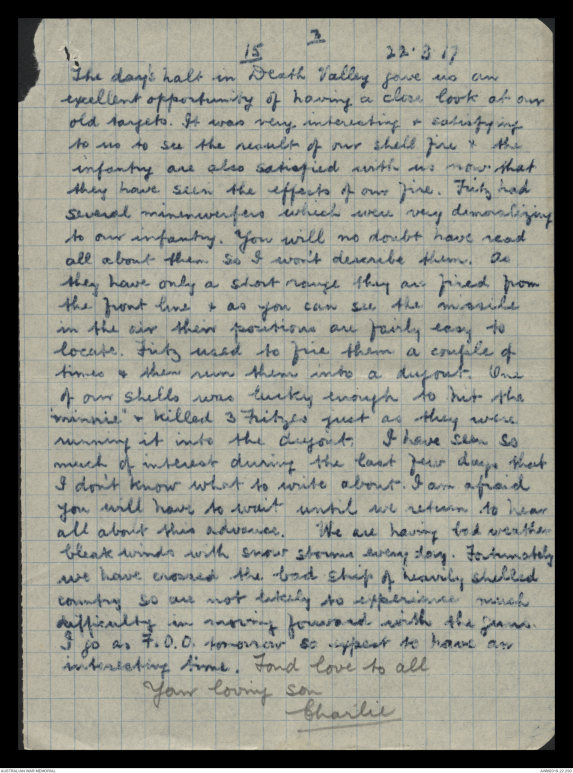 15 3 22.3.17
The day's halt in Death Valley gave us an
excellent opportunity of having a close look at our
old targets. It was very interesting & satisfying
to us to see the result of our shell fire & the
infantry are also satisfied with us now that
they have seen the effects of our fire. Fritz had
several minenwerfers which were very demoralizing
to our infantry. You will no doubt have read
all about them so I won't describe them. As
they have only a short range they are fired from
the front line & as you can see the missile
in the air their positions are fairly easy to
locate. Fritz used to fire them a couple of
times & then run them into a dugout. One
of our shells was lucky enough to hit the
"minnie" & killed 3 Fritzes just as they were
running it into the dugout. I have seen so
much of interest during the last few days that
I don't know what to write about. I am afraid
you will have to wait until we return to hear
all about this advance. We are having bad weather
bleak winds with snow storms every day. Fortunately
we have crossed the bad strip of heavily shelled
country so are not likely to experience much
difficulty in moving forward with the guns.
I go as F.O.O. tomorrow so expect to have an
interesting time. Fond love to all
Your loving son
Charlie
AUSTRALIAN WAR MEMORIAL